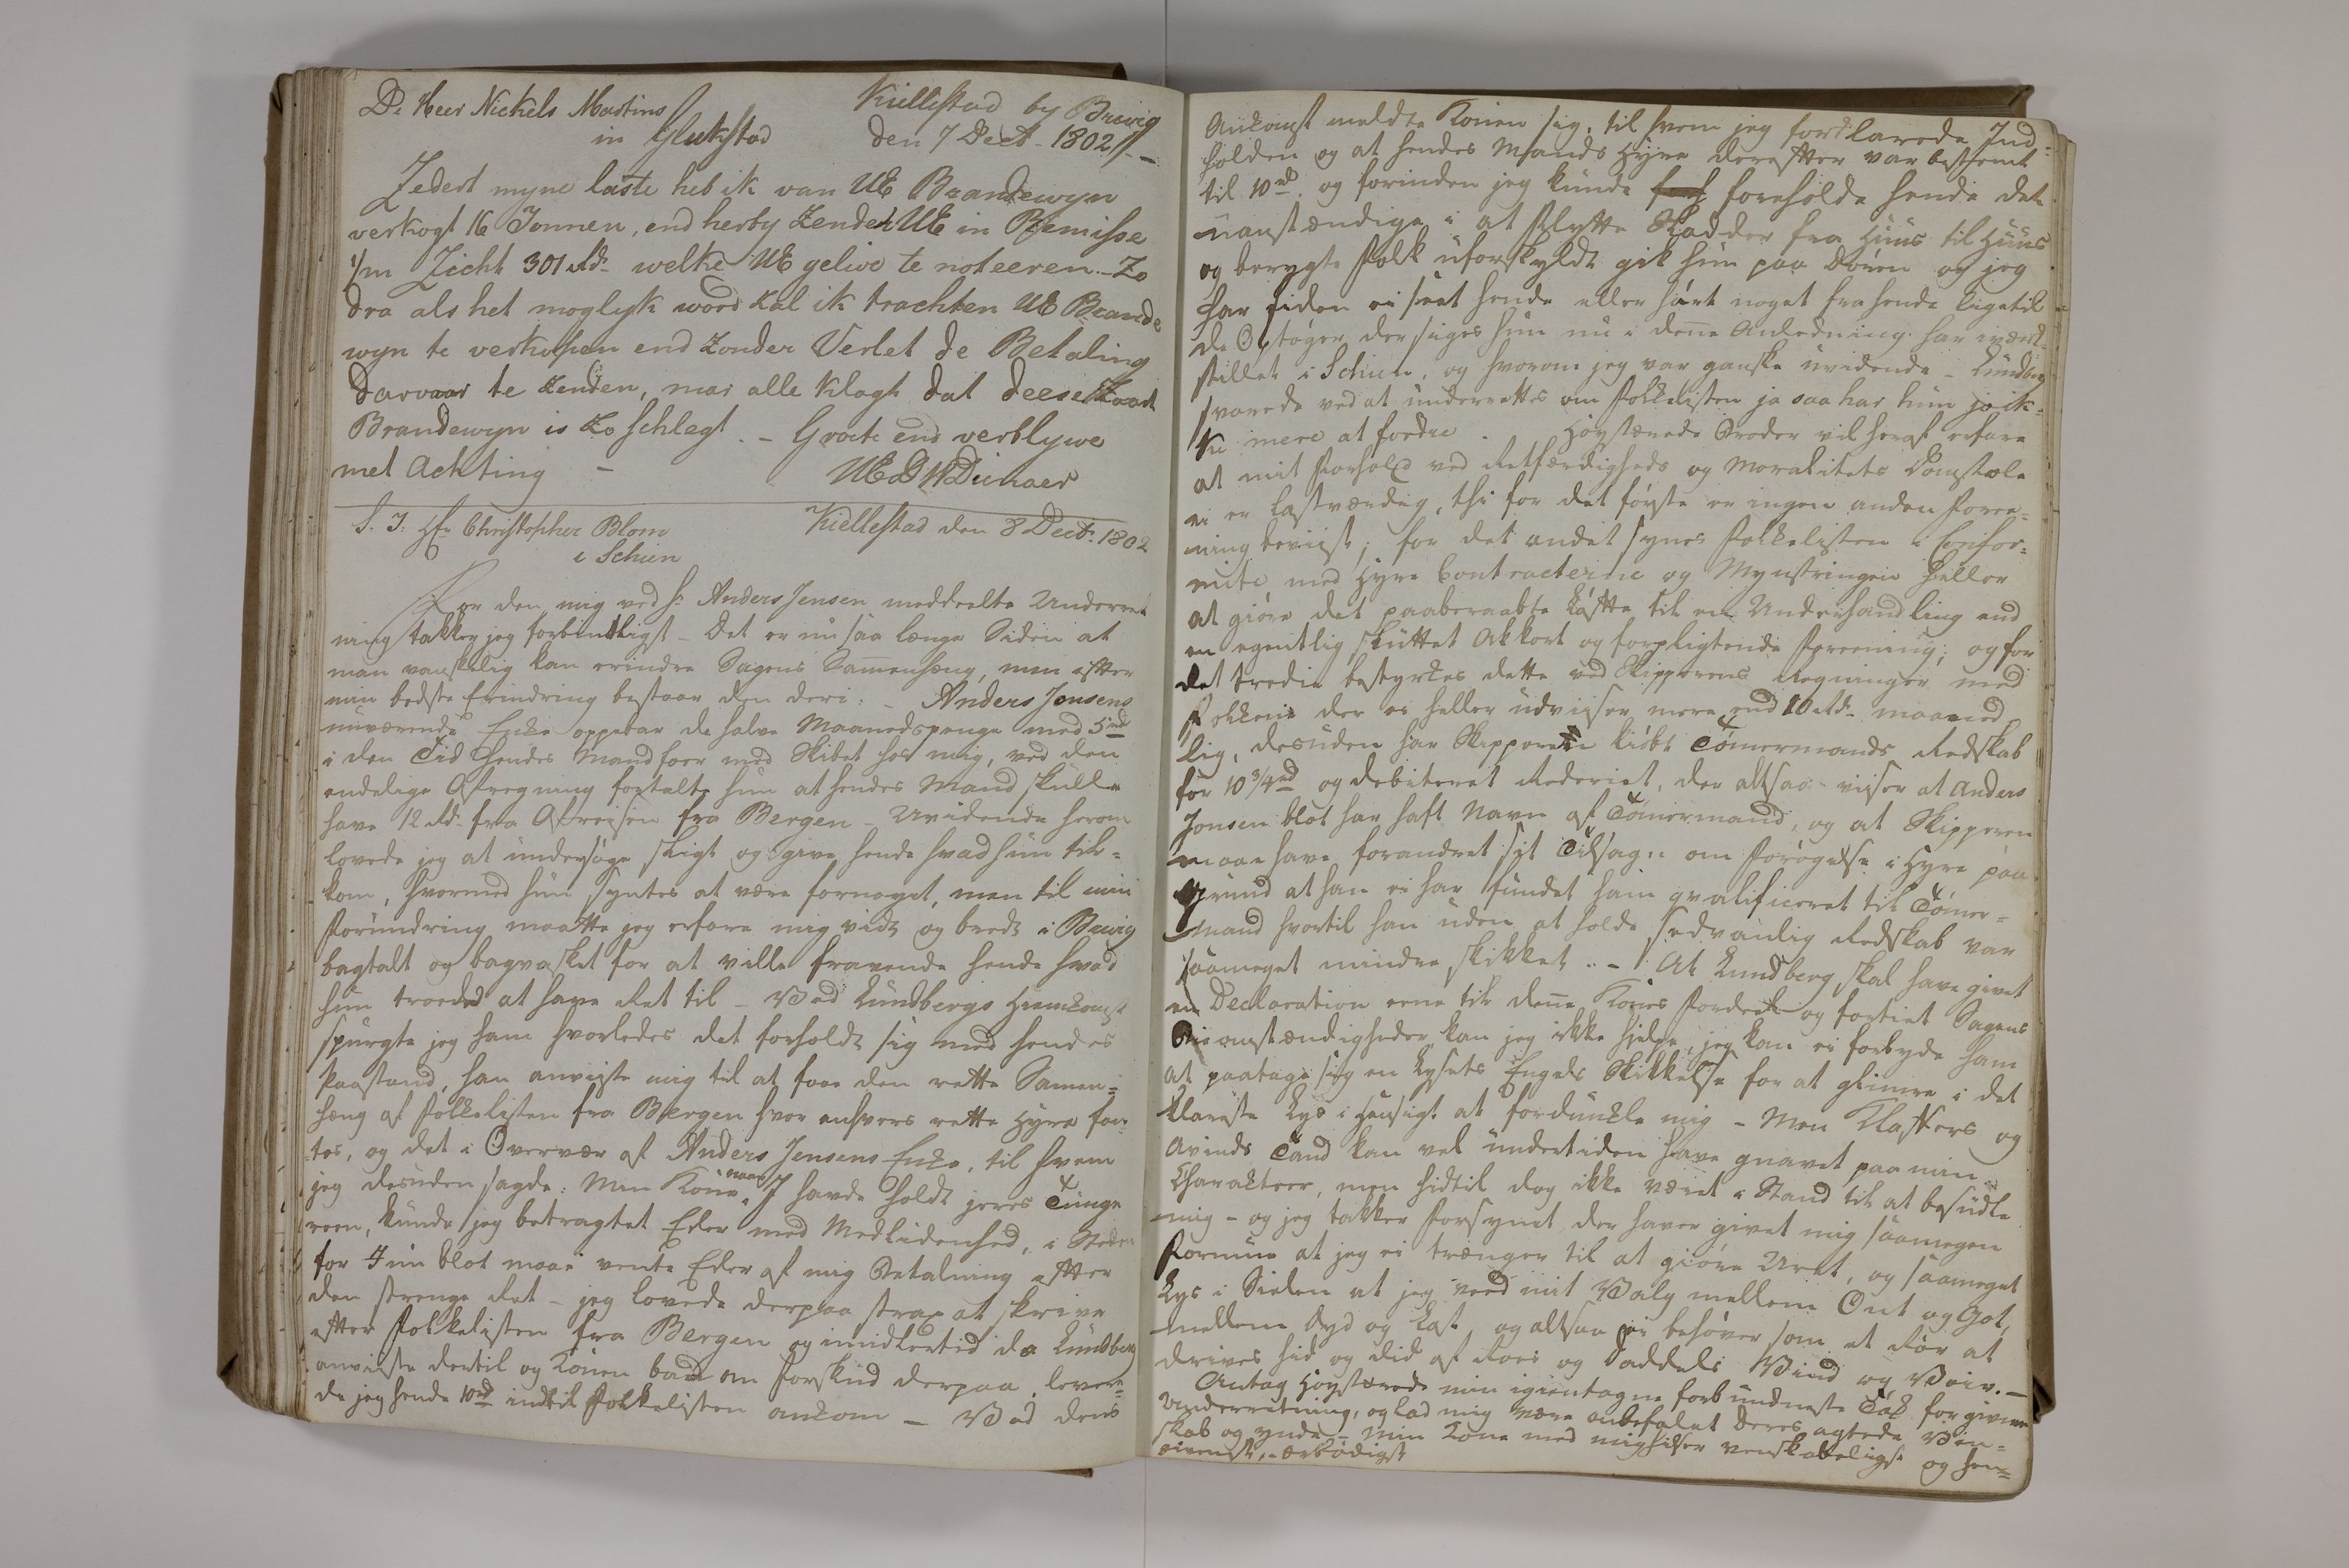 De Heer Nickels Martins
Kiellestad by Brevig
in Glukstad
den 7 Decb. 1802 //-
Zedert myne laste heb ik van UE Brandewyn
verkogt 16 Tonnen, end herby Zender UE in Remisse
1/m Zicht 301 Rd. welke UE gelive te noteeren. - Zo
dra als het moglyk word zal ik trachten UE Brande
wyn te verkopen end zonder Verlet de Betaling
darvaar te zenden, mar alle klagt dat deese Zoort
Brandewyn is zo schlegt. - Grote end verblyve
met Achting -
UE D W Dienaer
S. T. Hr. Christopher Blom
Kiellestad den 8 Decb. 1802
i Schien
For den mig ved Sr. Anders Jensen meddeelte Underret
ning takker jeg forbindtligst - Det er nu saa længe Siden at
man vanskelig kan erindre Sagens Sammenhæng, men efter
min bedste Erindring bestaar den deri: - Anders Jensens
nuværende Enke oppebar de halve Maanedspenge med 5 rd
i den Tid hendes Mand foer med Skibet hos mig, ved den
endelige Afregning fortalte hun at hendes Mand skulle
have 12 Rd. fra Afreisen fra Bergen - Uvidende herom
lovede jeg at undersøge sligt og give hende hvad hun til-
kom, hvormed hun syntes at være fornøyet, men til min
Forundring maatte jeg erfare mig vidt og bredt i Brevig
bagtalt og bagvasket for at ville fravende hende hvad
hun troede at have Ret til - Ved Lundbergs Hiemkomst
spurgte jeg ham hvorledes det forholdt sig med hendes
Paastand, han anviste mig til at faae den rette Samen-
hæng af Folkelisten fra Bergen hvor enhvers rette Hyre før-
tes, og det i Overvær af Anders Jensens Enke, til hvem
jeg desuden sagde: Min Kone naar I havde holdt jeres Tunge
reen, kunde jeg betragtet Eder med Medlidenhed, i Stedet
for I nu blot maae vente Eder af mig Betalning efter
den strenge Ret - jeg lovede derpaa strax at skrive
efter Folkelisten fra Bergen og imidlertid da Lundberg
anviste dertil og Konen bad om Forskud derpaa, lever-
de jeg hende 10 rd indtil Folkelisten ankom - Ved dens
Ankomst meldte Konen sig, til hvem jeg forklarede Ind-
holden og at hendes Mands Hyre derefter var bestemt
til 10 rd. og forinden jeg kunde foreholde hende det
uanstændige i at flytte Sladder fra Huus til Huus
og berygte Folk uforskyldt gik hun paa Døren og jeg
har siden ei seet hende eller hørt noget fra hende ligetil
de Optøger der siges hun nu i denne Anledning har iværk-
stillet i Schien, og hvorom jeg var ganske uvidende - Lundberg
svarede ved at underrettes om Folkelisten ja saa har hun jo ik-
ke mere at fordre. Høystærede Broder vil heraf erfare
at mit Forhold ved Retfærdigheds og Moralitets Domstole
ei er lastværdig, thi for det første er ingen anden Foree-
ning beviist; for det andet synes Folkelisten i Confor-
mite med Hyre Contracterne og Mynstringen heller
at giøre det paaberaabte Løfte til en Underhandling end
en egentlig sluttet Akkort og forpligtende Foreening; og for
det tredie bestyrkes dette ved Skipperens Regninger med
Folkene der ei heller udviiser mere end 10 Rd. maaned
lig, desuden har Skipperen kiøbt Tømermands Redskab
for 10 3/4 rd og debiteret Rederiet, der altsaa viiser at Anders
Jensen blot har haft Navn af Tømermand, og at Skipperen
maae have forandret sit Tilsagn om Forøgelse i Hyre paa
Grund at han ei har fundet ham qvalificeret til Tømer-
mand hvortil han uden at holde sedvanlig Redskab var
saameget mindre skikket. - At Lundberg skal have givet
en Declaration eene til denne Kones Fordeel og fortiet Sagens
Omstændigheder kan jeg ikke hielpe, jeg kan ei forbyde ham
at paatage sig en Lysets Engels Skikkelse for at glimre i det
klareste Lys i Hensigt at fordunkle mig - Men Klaffers og
Avinds Tand kan vel undertiden have gnavet paa min
Charakteer, men hidtil dog ikke været i Stand til at besudle
mig - og jeg takker Forsynet der haver givet mig saamegen
Formue at jeg ei trænger til at giøre Uret, og saameget
Lys i Sielen at jeg veed mit Valg mellem Ont og Got,
mellem Dyd og Last, og altsaa ei behøver som et Rør at
drives hid og did af Roes og Daddels Wind og Veir. -
Antag Høystærede min igientagne forbundneste Tak for givne
Underretning, og lad mig være anbefalet Deres agtede Ven-
skab og ynde - min Kone med mig hilser venskabeligst og hen-
givenst. ærbødigst